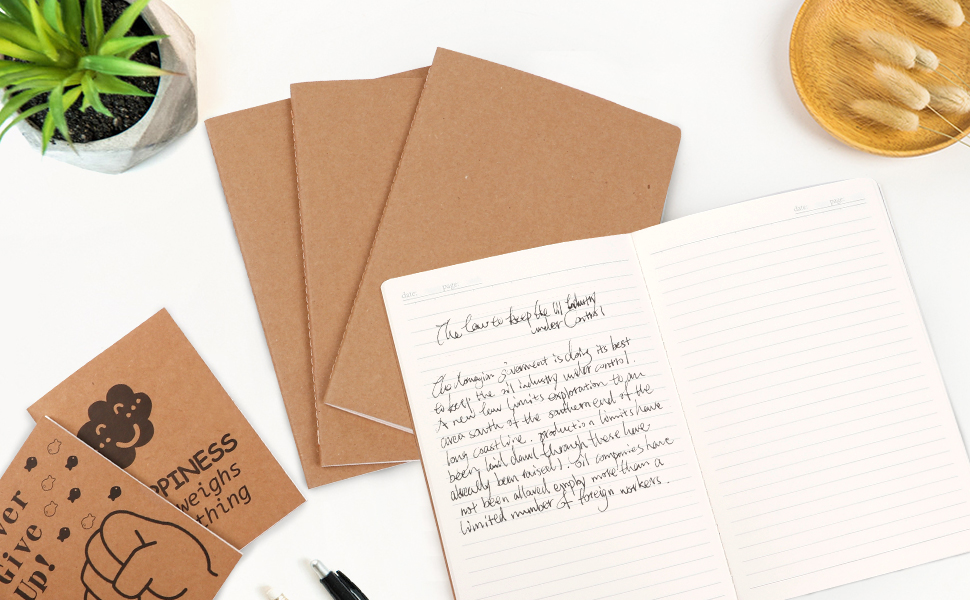 date: page:
The law to keep the oil industry
under Control
The Norwegian government is doing its best
to keep the oil industry under control.
A new law limits exploration to an
area south of the southern end of the
long coastline. production limits have
been laid down through these have
already been raised). oil companies have
not been allowed employ more than a
limited number of foreign workers.
date: page:
PPINESS
weighs
thing
ver
Give
Up!